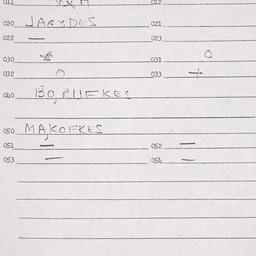 011 012
020 JAGYDES 021
022 — 023
030 031 0
032 033 +
040
050 MAKOFKES
051 — 052 —
053 — 054 —